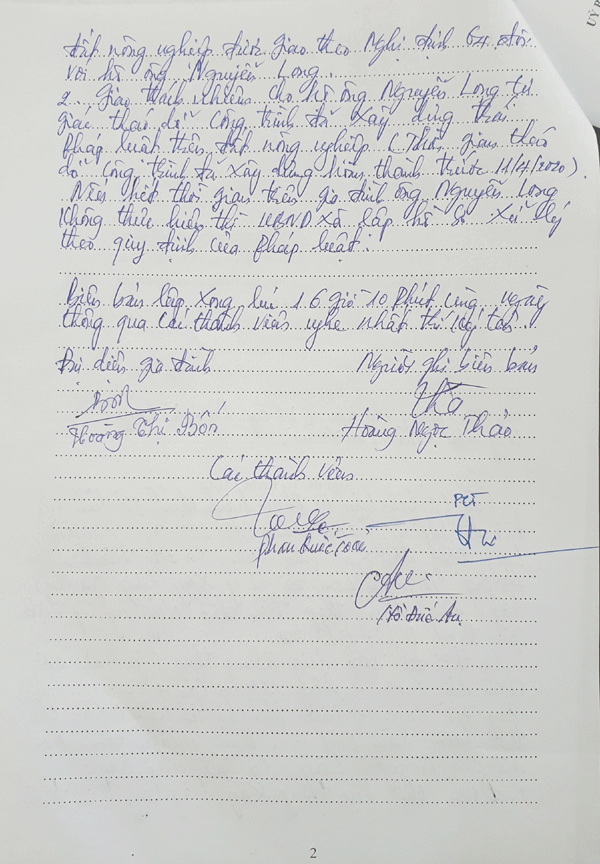 đất nông nghiệp được giao theo Nghị định 64 đối
với hộ ông Nguyễn Long.
2. Giao trách nhiệm cho hộ ông Nguyễn Long tự
giác tháo dỡ công trình đã xây dựng trái
pháp luật trên đất nông nghiệp (Thời gian tháo
dỡ công trình đã xây dựng hoàn thành trước 11/4/2020).
Nếu hết thời gian trên gia đình ông Nguyễn Long
không thực hiện thì UBND xã lập hồ sơ xử lý
theo quy định của pháp luật.
Biên bản lập xong lúc 16 giờ 10 phút cùng ngày
thông qua các thành viên nghe nhất trí ký tên.
Đại diện gia đình
Người ghi biên bản
Hoàng Thị Bốn
Hoàng Ngọc Thảo
Các thành viên
Phan Quốc Toàn
PCT
Hồ Đức An
2
UỶ B